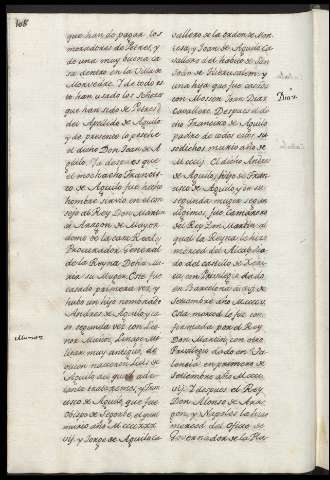 168
que han de pagar los
moradores de Petres, y
de una muy buena ca
sa dentro en la Villa de
Monvedre. Y de todo es
to han usado los Señores
que han sido de Petres
del Apellido de Aguilo
y de presente lo possehe
el dicho Don Joan de A
guilo. Y a despues que
el mochacho Francis
co de Aguilo fue hecho
hombre sirvio en el con
sejo de Rey Don Martin
de Aragon de Mayor
domo de la casa Real, y
Procurador General
de la Reyna Doña Lu
su Muger. Este fue
casado primera vez, y
hubo un hijo nombrado
Andres de Aguilo, y ca
so segunda vez con Leo
nor Muñoz, Linage Mo
muy antiguo, de
quien nacieron Luis de
Aguilo del qual ade
lante trataremos, y Fran
cisco de Aguilo, que fue
Obispo de Segorbe, el qual
murio año MCCCCXXX
vij. y Jorge de Aguilo Ca
Munoz
vallero de la orden de Mon
tesa, y Joan de Aguilo Ca
vallero del habito de San
Joan de Hierusalem: y
una hija que caso
con Mossen Joan Diez
Cavallero. Despues
Francisco de Aguilo
padre de todos estos su
sodichos murio año de
El dicho Andres
de Aguilo, hijo de Fran
cisco de Aguilo, y en su
segunda muger segun
digimos, fue Camarero
del Rey Don Martin, al
qual la Reyna le hizo
merced del Alcaydia
do del castillo de Xati
va, con Privilegio dado
en Barcelona
Setiembre año
Esta merced le fue con
firmada por el Rey
Don Martin, con otro
Privilegio dado en Va
lencia en primero de
Setiembre año
Y despues el Rey
Don Alonso de Ara
gon, y Napoles le hizo
merced del Oficio de
Governador de la Pla
Diez